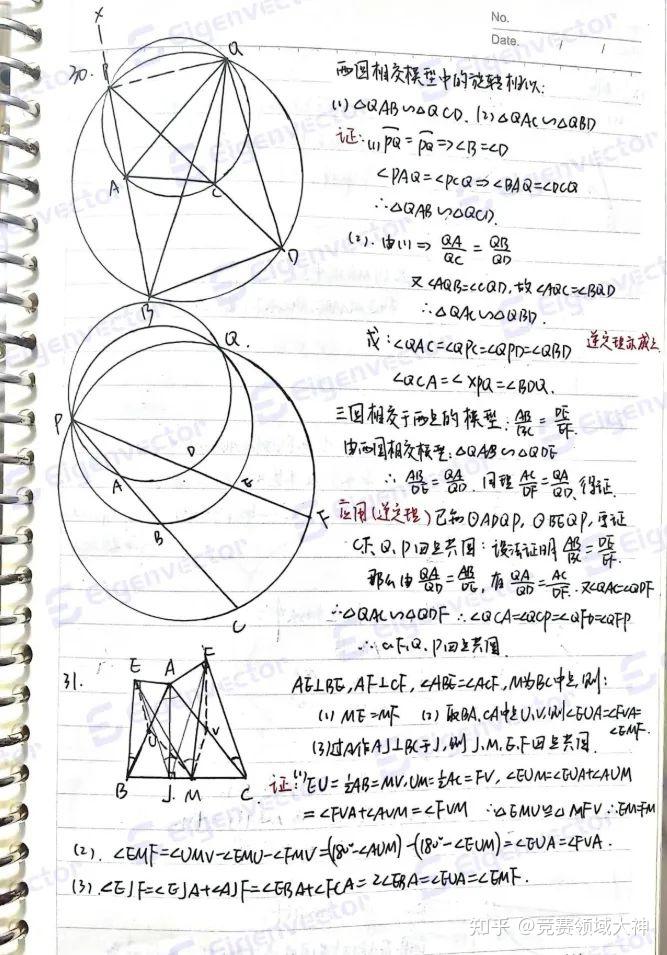 No.
Date.
30.
两圆相交模型中的旋转相似:
(1) △QAB∽△QCD. (2) △QAC∽△QBD
证: (1) PQ = PQ ⇒ ∠B=∠D
∠PAQ=∠PCQ ⇒ ∠BAQ=∠DCQ
∴△QAB∽△QCD.
(2). 由(1) ⇒ QA/QC = QB/QD
又∠AQB=∠CQD, 故∠AQC=∠BQD
∴△QAC∽△QBD.
或: ∠QAC=∠QPC=∠QPD=∠QBD 逆定理亦成立
∠QCA=∠XPQ=∠BDQ.
三圆相交于两点的模型: AB/BC = DE/EF.
由两圆相交模型: △QAB∽△QDE
∴ AB/DE = QA/QD. 同理 AC/DF = QA/QD. 得证.
应用(逆定理) 已知⊙ADQP, ⊙BEQP, 要证
C.F. Q. P四点共圆: 设法证明 AB/BC = DE/EF.
那么由 QA/QD = AB/DE, 有 QA/QD = AC/DF. 又∠QAC=∠QDF
∴△QAC∽△QDF ∴∠QCA=∠QCP=∠QFD=∠QFP
∴C.F.Q.P四点共圆.
31.
AE⊥BE, AF⊥CF, ∠ABE=∠ACF, M为BC中点, 则:
(1) ME=MF (2) 取BA, CA中点U, V, 则∠EUA=∠FVA=∠EMF.
(3) 过A作AJ⊥BC于J, 则J. M. E. F四点共圆.
证: (1) EU=½AB=MV, UM=½AC=FV, ∠EUM=∠EUA+∠AUM
=∠FVA+∠AVM=∠FVM ∴△EMU≌△MFV ∴EM=FM
(2). ∠EMF=∠UMV-∠EMU-∠FMV=(180°-∠AUM)-(180°-∠EUM)=∠EUA=∠FVA.
(3). ∠EJF=∠EJA+∠AJF=∠EBA+∠FCA=2∠EBA=∠EUA=∠EMF.
X
P
Q
A
C
D
B
Q
P
D
A
E
F
B
C
E
A
F
U
V
B
J.
M
C.
Eigenvector
知乎 @竞赛领域大神